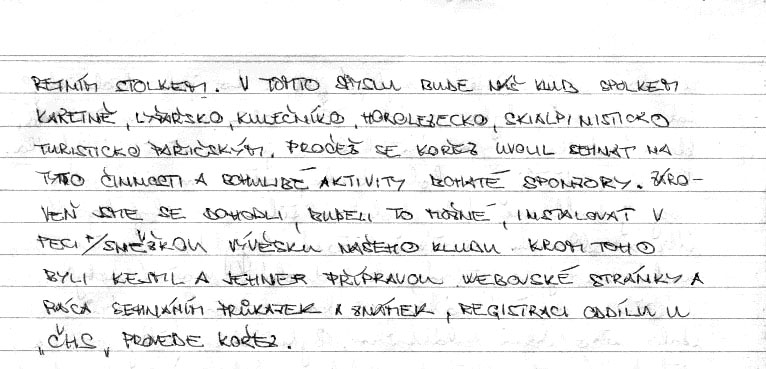 RETNÍM STOLKEM. V TOMTO SMYSLU BUDE NÁŠ KLUB SPOLKEM
KAŘETNĚ, LYŽAŘSKO, KULEČNÍKO, HOROLEZECKO, SKIALPINISTICKO
TURISTICKO PAŘIČSKÝM, PROČEŽ SE KOŘEŽ UVOLIL SEHNAT NA
TYTO ČINNOSTI A BOHULIBÉ AKTIVITY BOHATÉ SPONZORY. ZÁRO-
VEŇ JSME SE DOHODLI, BUDELI TO MOŽNÉ, INSTALOVAT V
PECI P/SNĚŽKOU VÝVĚSKU NAŠEHO KLUBU. KROM TOHO
BYLI A JEHNER PŘÍPRAVOU WEBOVSKÉ STRÁNKY A
SEHNÁNÍM PRŮKAZEK A ZNÁMEK, REGISTRACI ODDÍLU U
„ČHS„ PROVEDE KOŘEŽ.